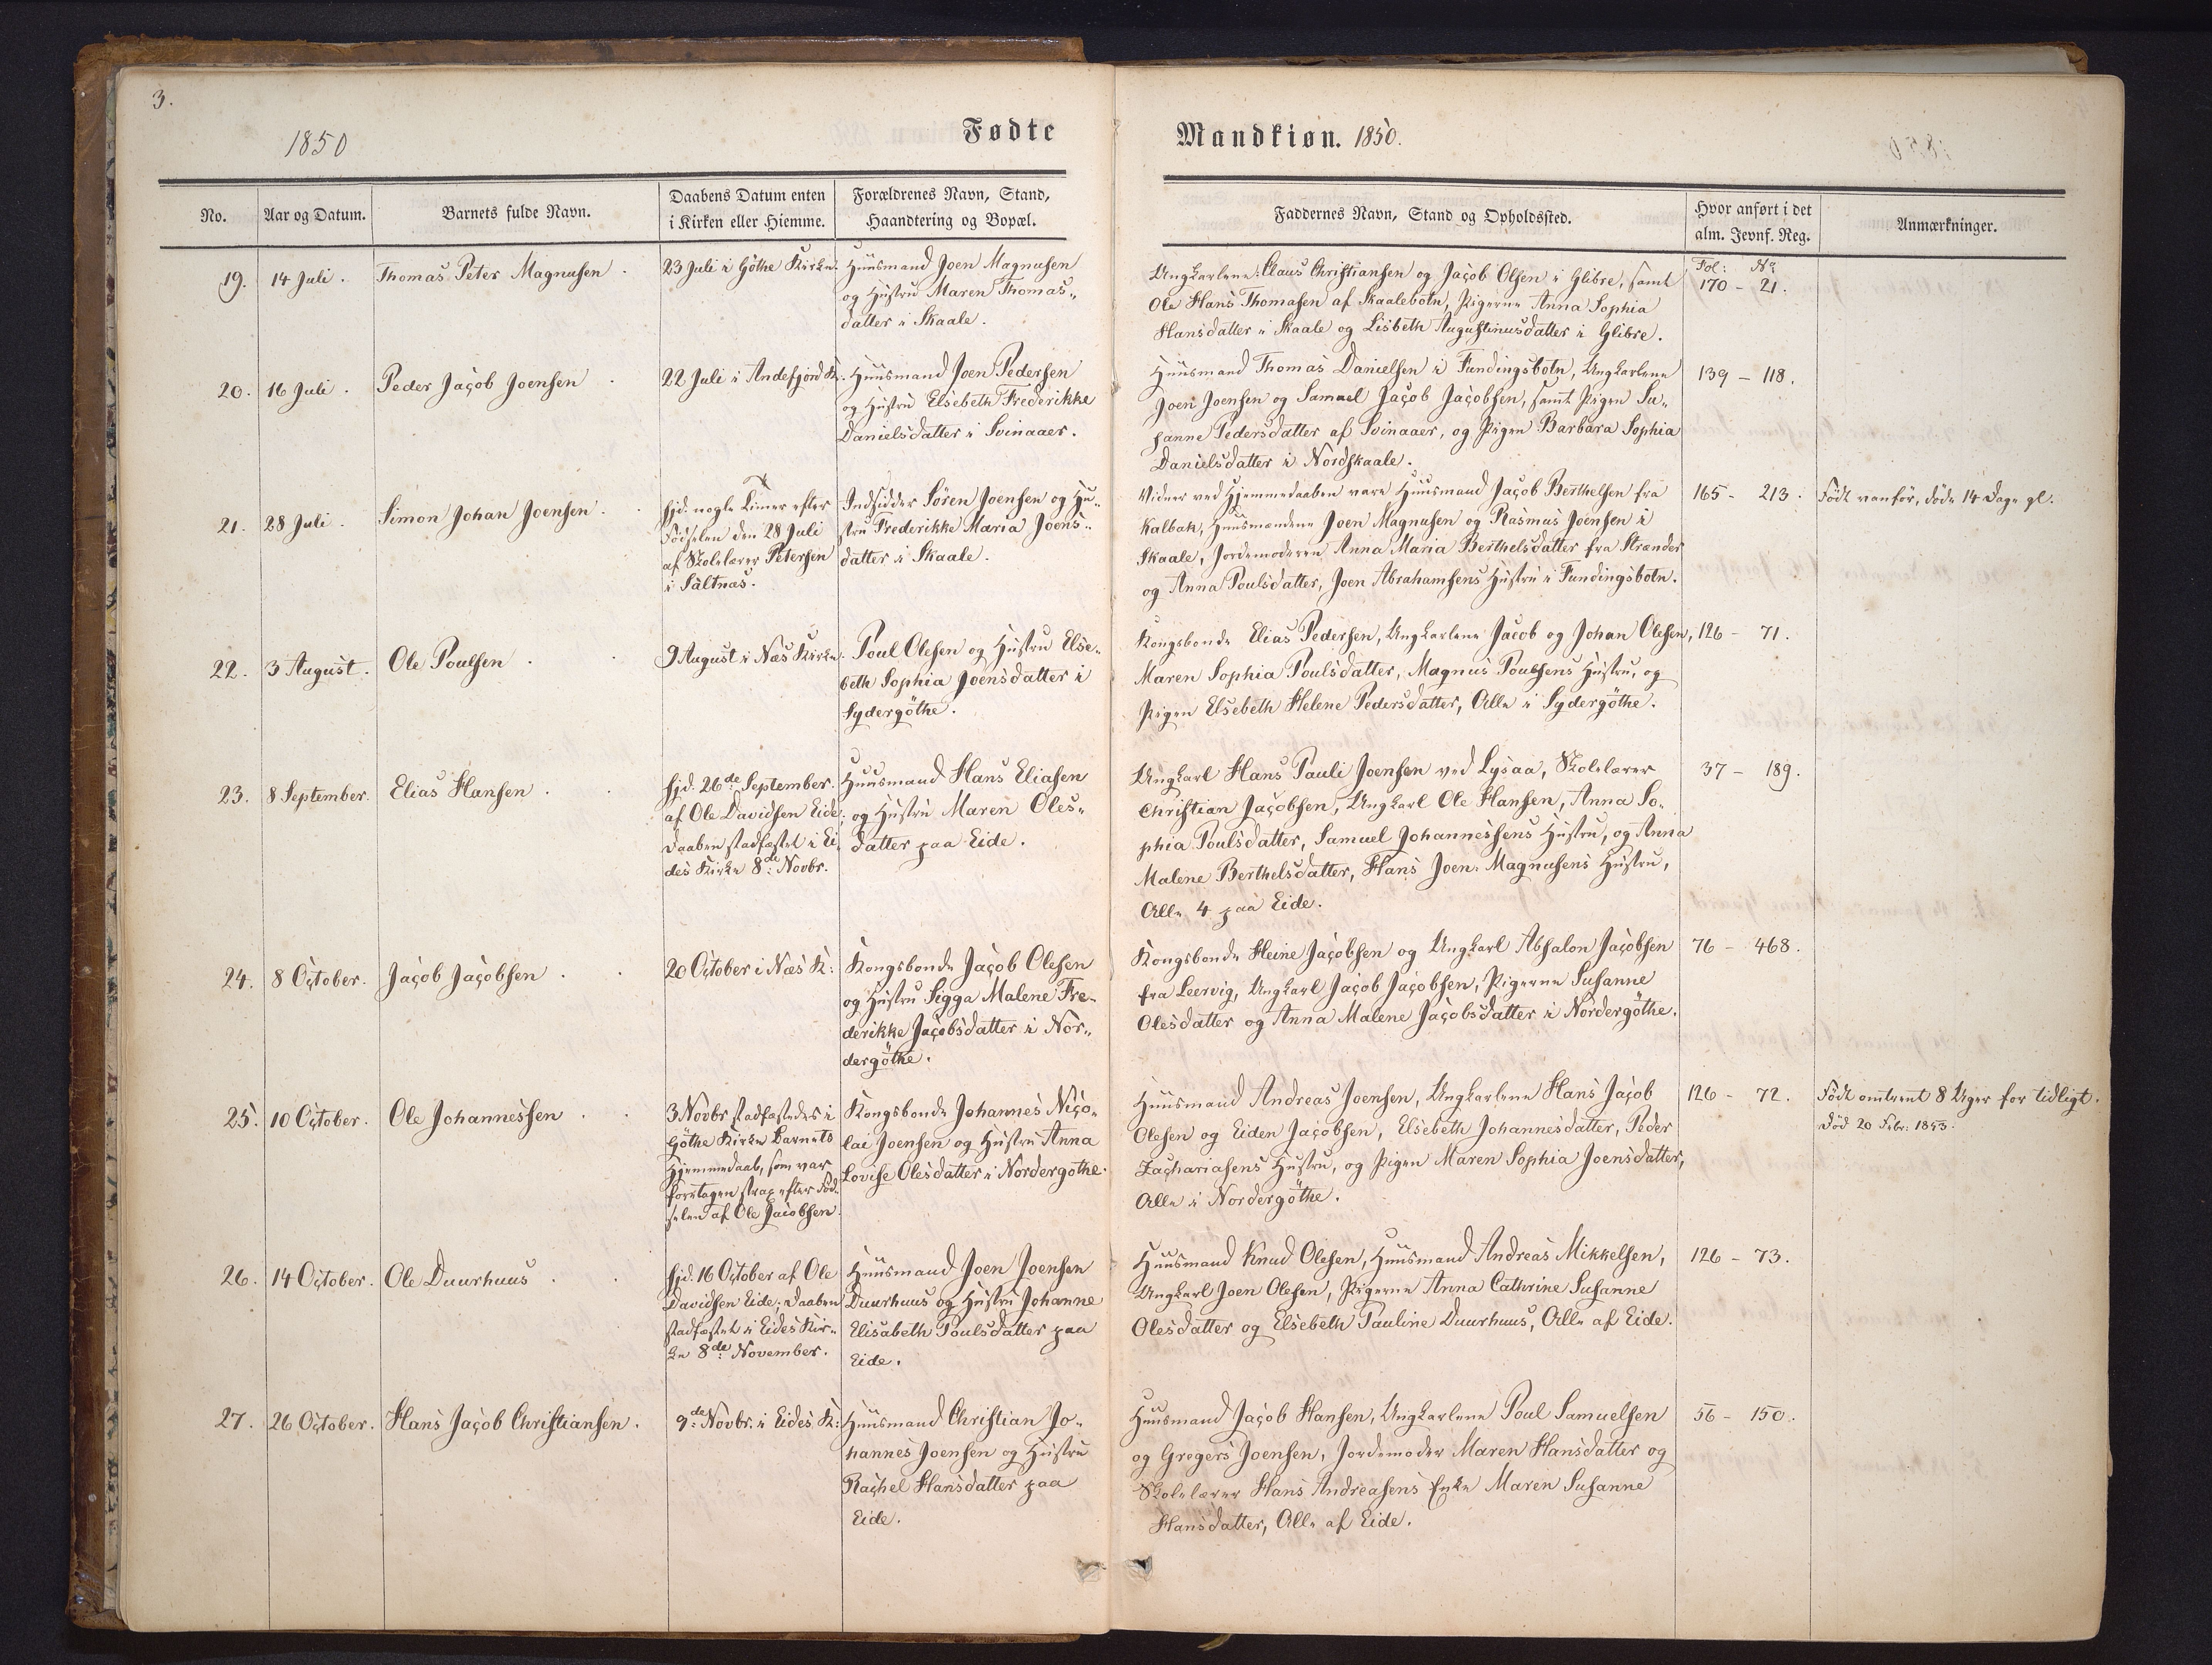 3.
1850
Fødte
Mandkiøn. 1850.
No.
Aar og Datum.
Barnets fulde Navn.
Daabens Datum enten
i Kirken eller Hiemme.
Forældrenes Navn, Stand,
Haandtering og Bopæl.
Faddernes Navn, Stand og Opholdssted.
Hvor anført i det
alm. Jevnf. Reg.
Anmærkninger.
19.
14 Juli.
Thomas Peter Magnusen
23 Juli i Göthe Kirke.
Huusmand Joen Magnusen
og Hustru Maren Thomas-
datter i Skaale.
Ungkarlene: Claus Christiansen og Jacob Olsen i Glibre, samt
Ole Hans Thomasen af Skaalebotn, Pigerne Anna Sophia
Hansdatter i Skaale og Lisbeth Augustinusdatter i Glibre.
Fol: No
170 - 21.
20.
16 Juli.
Peder Jacob Joensen
22 Juli i Andefjord K:
Huusmand Joen Pedersen
og Hustru Elsebeth Frederikke
Danielsdatter i Svinaaer.
Huusmand Thomas Danielsen i Fundingsbotn, Ungkarlene
Joen Joensen og Samuel Jacob Jacobsen, samt Pigen Su-
sanne Pedersdatter af Svinaaer, og Pigen Barbara Sophia
Danielsdatter i Nordskaale.
139 - 118.
21.
28 Juli.
Simon Johan Joensen.
Hjd. nogle Timer efter
Fødselen den 28 Juli
af Skolelærer Petersen
i Saltnæs.
Indsidder Sören Joensen og Hu-
stru Frederikke Maria Joens-
datter i Skaale.
Vidner ved Hjemmedaaben vare Huusmand Jacob Berthelsen fra
Kalbak, Huusmændene Joen Magnusen og Rasmus Joensen i
Skaale, Jordemoderen Anna Maria Berthelsdatter fra Strænder
og Anna Poulsdatter, Joen Abrahamsens Hustru i Fundingsbotn.
165 - 213.
Födt vanför, döde 14 Dage gl.
22.
3 August.
Ole Poulsen
9 August i Næs Kirke.
Poul Olesen og Hustru Else-
beth Sophia Joensdatter i
Sydergöthe.
Kongsbonde Elias Pedersen, Ungkarlene Jacob og Johan Olesen,
Maren Sophia Poulsdatter, Magnus Poulsens Hustru, og
Pigen Elsebeth Helene Pedersdatter, Alle i Sydergöthe.
126 - 71.
23.
8 September.
Elias Hansen
Hjd. 26de September
af Ole Davidsen Eide;
Daaben stadfæstet i Ei-
des Kirke 8de Novbr.
Huusmand Hans Eliasen
og Hustru Maren Oles-
datter paa Eide.
Ungkarl Hans Pauli Joensen ved Lysaa, Skolelærer
Christian Jacobsen, Ungkarl Ole Hansen, Anna So-
phia Poulsdatter, Samuel Johannessens Hustru, og Anna
Malene Berthelsdatter, Hans Joen Magnusens Hustru,
Alle 4 paa Eide.
37 - 189.
24.
8 October.
Jacob Jacobsen
20 October i Næs K:
Kongsbonde Jacob Olesen
og Hustru Sigga Malene Fre-
derikke Jacobsdatter i Nor-
dergöthe.
Kongsbonde Heine Jacobsen og Ungkarl Absalon Jacobsen
fra Leervig, Ungkarl Jacob Jacobsen, Pigerne Susanne
Olesdatter og Anna Malene Jacobsdatter i Nordergöthe.
76 - 468.
25.
10 October.
Ole Johannessen
3 Novbr. stadfæstedes i
Göthe Kirke Barnets
Hjemmedaab, som var
foretagen strax efter Föd-
selen af Ole Jacobsen.
Kongsbonde Johannes Nico-
lai Joensen og Hustru Anna
Lovise Olesdatter i Nordergothe.
Huusmand Andreas Joensen, Ungkarlene Hans Jacob
Olesen og Eiden Jacobsen, Elsebeth Johannesdatter, Peder
Zachariasens Hustru, og Pigen Maren Sophia Joensdatter,
Alle i Nordergöthe.
126 - 72.
Födt omtrent 8 Uger for tidligt.
Död 20 Febr. 1853.
26.
14 October.
Ole Duurhuus
Hjd. 16 October af Ole
Davidsen Eide; Daaben
stadfæstet i Eides Kir-
ke 8de November.
Huusmand Joen Joensen
Duurhuus og Hustru Johanne
Elisabeth Poulsdatter paa
Eide.
Huusmand Knud Olesen, Huusmand Andreas Mikkelsen,
Ungkarl Joen Olesen, Pigerne Anna Cathrine Susanne
Olesdatter og Elsebeth Pauline Duurhuus, Alle af Eide.
126 - 73.
27.
26 October.
Hans Jacob Christiansen.
9de Novbr. i Eides K:
Huusmand Christian Jo-
hannes Joensen og Hustru
Rachel Hansdatter paa
Eide.
Huusmand Jacob Hansen, Ungkarlene Poul Samuelsen
og Gregers Joensen, Jordemoder Maren Hansdatter og
Skolelærer Hans Andreasens Enke Maren Susanne
Hansdatter, Alle af Eide.
56 - 150.